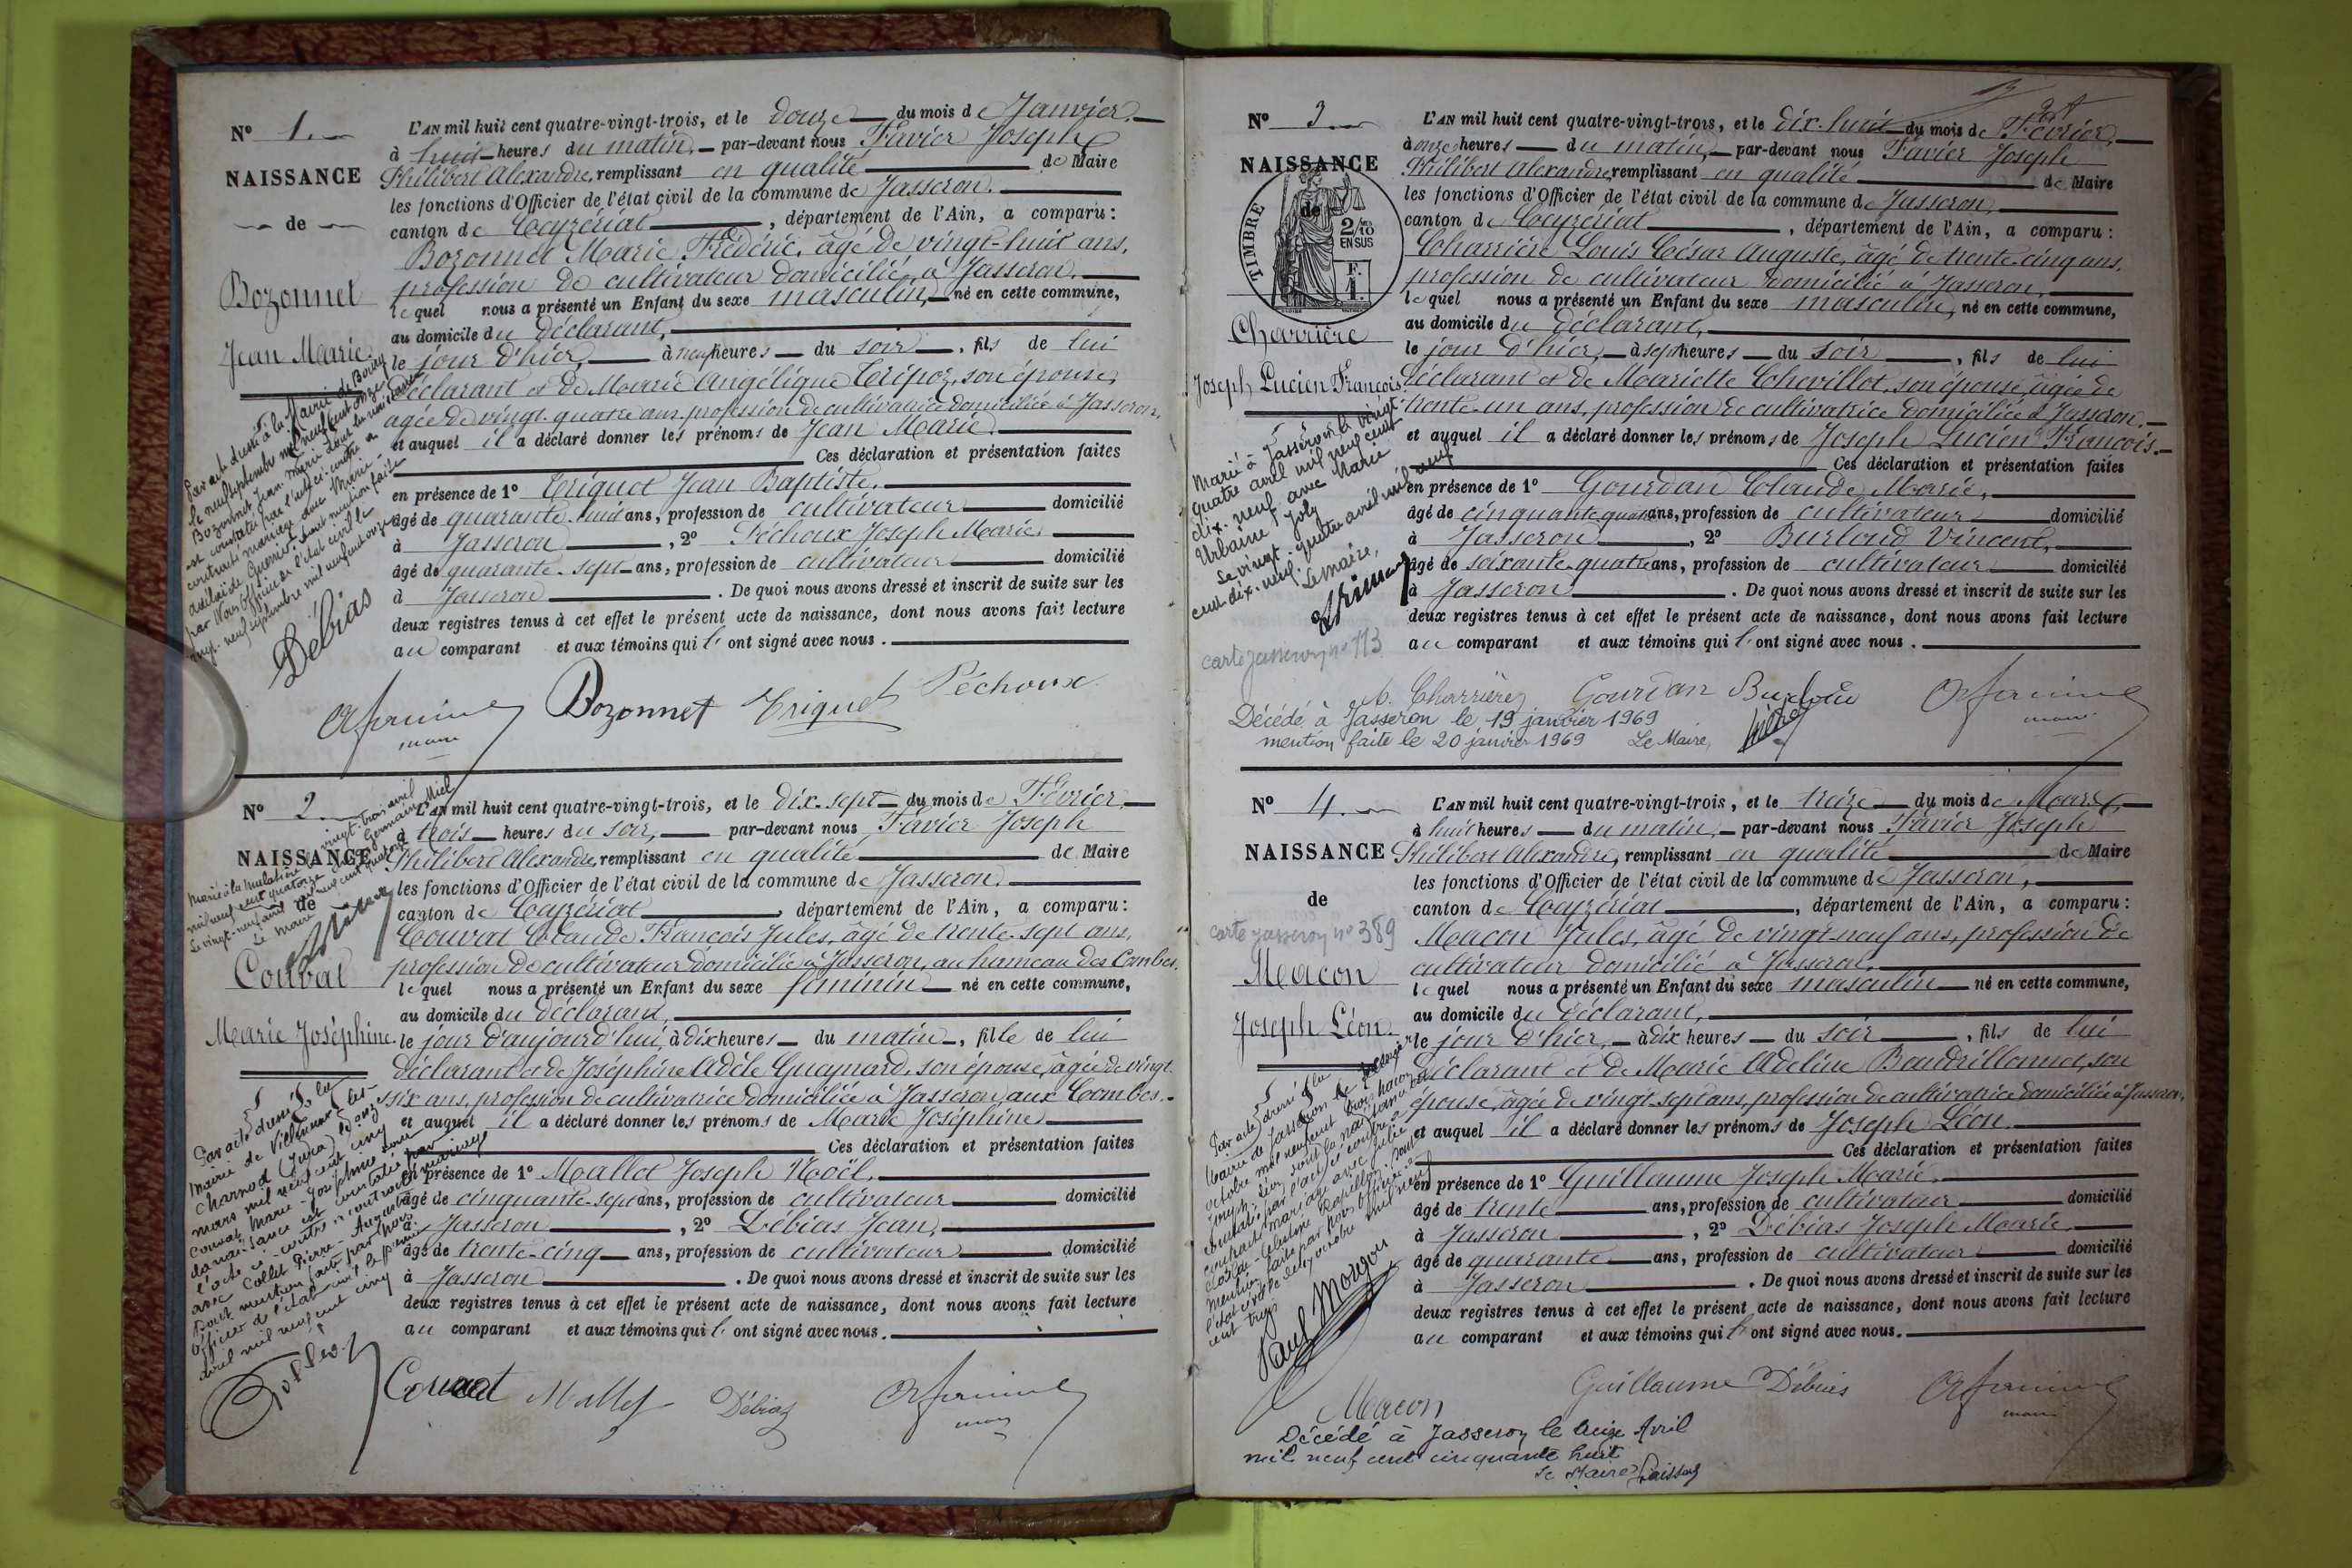 N° 1.
NAISSANCE
de
Bozonnet
Jean Marie
L'AN mil huit cent quatre-vingt-trois, et le douze du mois de Janvier,
à huit heures du matin, par-devant nous Favier Joseph
Philibert Alexandre, remplissant en qualité de Maire
les fonctions d'Officier de l'état civil de la commune de Jasseron,
canton de Ceyzériat, département de l'Ain, a comparu :
Bozonnet Marie Frédéric, âgé de vingt-huit ans,
profession de cultivateur domicilié à Jasseron,
lequel nous a présenté un Enfant du sexe masculin, né en cette commune,
au domicile du déclarant,
le jour d'hier, à neuf heures du soir, fils de lui
déclarant et de Marie Angélique Crépoz, son épouse,
agée de vingt-quatre ans, profession de cultivatrice domiciliée à Jasseron,
et auquel il a déclaré donner les prénoms de Jean Marie.
Ces déclaration et présentation faites
en présence de 1° Triquet Jean Baptiste,
âgé de quarante-huit ans, profession de cultivateur domicilié
à Jasseron, 2° Péchoux Joseph Marie,
âgé de quarante-sept ans, profession de cultivateur domicilié
à Jasseron. De quoi nous avons dressé et inscrit de suite sur les
deux registres tenus à cet effet le présent acte de naissance, dont nous avons fait lecture
au comparant et aux témoins qui l'ont signé avec nous.
Par acte dressé à la Mairie de
le neuf septembre mil neuf cent onze
Bozonnet, Jean-Marie dont la naissance
est constatée par l'acte ci-contre a
contracté mariage avec Marie-
dont mention faite
par Nous officier de l'état civil le
neuf septembre mil neuf cent onze
Débias
maire Bozonnet Triquet Péchoux
N° 2.
NAISSANCE
de
Couvat
Marie Joséphine
L'AN mil huit cent quatre-vingt-trois, et le dix-sept du mois de Février,
à trois heures du soir, par-devant nous Favier Joseph
Philibert Alexandre, remplissant en qualité de Maire
les fonctions d'Officier de l'état civil de la commune de Jasseron,
canton de Ceyzériat, département de l'Ain, a comparu :
Couvat Claude François Jules, âgé de trente-sept ans,
profession de cultivateur domicilié à Jasseron, au hameau des Combes,
lequel nous a présenté un Enfant du sexe féminin né en cette commune,
au domicile du déclarant,
le jour d'aujourd'hui, à dix heures du matin, fille de lui
déclarant et de Joséphine Adèle Guaynard, son épouse, âgée de vingt-
six ans, profession de cultivatrice domiciliée à Jasseron, aux Combes.
et auquel il a déclaré donner les prénoms de Marie Joséphine
Ces déclaration et présentation faites
en présence de 1° Mallet Joseph Noël,
âgé de cinquante-sept ans, profession de cultivateur domicilié
à Jasseron, 2° Débias Jean,
âgé de trente-cinq ans, profession de cultivateur domicilié
à Jasseron. De quoi nous avons dressé et inscrit de suite sur les
deux registres tenus à cet effet le présent acte de naissance, dont nous avons fait lecture
au comparant et aux témoins qui l'ont signé avec nous.
Marié à la Mulatière le vingt-trois avril
mil neuf cent quatorze avec Germain Miel
Le vingt-neuf avril mil neuf cent quatorze
Le Maire
Par acte dressé à la
mairie de Villeneuve les
Charnod (Jura) le onze
mars mil neuf cent cinq
Couvat, Marie-Joséphine dont
la naissance est constatée par
l'acte ci-contre a contracté mariage
avec Collet Pierre-Auguste
Dont mention faite par Nous
officier de l'état civil le premier
avril mil neuf cent cinq
Couvat Mallet Débias maire
N° 3
NAISSANCE
de
TIMBRE
2/10
EN SUS
F.
1.
Charrière
Joseph Lucien François
L'AN mil huit cent quatre-vingt-trois, et le dix-huit du mois de Février,
à onze heures du matin, par-devant nous Favier Joseph
Philibert Alexandre, remplissant en qualité de Maire
les fonctions d'Officier de l'état civil de la commune de Jasseron,
canton de Ceyzériat, département de l'Ain, a comparu :
Charrière Louis César Auguste, âgé de trente-cinq ans,
profession de cultivateur domicilié à Jasseron,
lequel nous a présenté un Enfant du sexe masculin, né en cette commune,
au domicile du déclarant,
le jour d'hier, à sept heures du soir, fils de lui
déclarant et de Mariette Chevillot, son épouse, âgée de
trente-un ans, profession de cultivatrice domiciliée à Jasseron,
et auquel il a déclaré donner les prénoms de Joseph Lucien François.
Ces déclaration et présentation faites
en présence de 1° Gourdan Claude Marie,
âgé de cinquante quatre ans, profession de cultivateur domicilié
à Jasseron, 2° Burloud Vincent,
âgé de soixante-quatre ans, profession de cultivateur domicilié
à Jasseron. De quoi nous avons dressé et inscrit de suite sur les
deux registres tenus à cet effet le présent acte de naissance, dont nous avons fait lecture
au comparant et aux témoins qui l'ont signé avec nous.
Marié à Jasseron le vingt-
quatre avril mil neuf cent
dix-neuf avec Marie
Urbaine Joly
Le vingt-quatre avril mil neuf
cent dix-neuf. Le Maire,
carte jasseron n° 113
Charrière Gourdan Burloud
maire
Décédé à Jasseron le 19 janvier 1969
mention faite le 20 janvier 1969 Le Maire,
N° 4.
NAISSANCE
de
carte jasseron n° 389
Macon
Joseph Léon.
L'AN mil huit cent quatre-vingt-trois, et le treize du mois de Mars,
à huit heures du matin, par-devant nous Favier Joseph
Philibert Alexandre, remplissant en qualité de Maire
les fonctions d'Officier de l'état civil de la commune de Jasseron,
canton de Ceyzériat, département de l'Ain, a comparu :
Macon Jules, âgé de vingt-neuf ans, profession de
cultivateur domicilié à Jasseron,
lequel nous a présenté un Enfant du sexe masculin né en cette commune,
au domicile du déclarant,
le jour d'hier, à dix heures du soir, fils de lui
déclarant et de Marie Adeline Baudrillonnet, son
épouse, âgée de vingt-sept ans, profession de cultivatrice domiciliée à Jasseron,
et auquel il a déclaré donner les prénoms de Joseph Léon.
Ces déclaration et présentation faites
en présence de 1° Guillaume Joseph Marie,
âgé de trente ans, profession de cultivateur domicilié
à Jasseron, 2° Débias Joseph Marie,
âgé de quarante ans, profession de cultivateur domicilié
à Jasseron. De quoi nous avons dressé et inscrit de suite sur les
deux registres tenus à cet effet le présent acte de naissance, dont nous avons fait lecture
au comparant et aux témoins qui l'ont signé avec nous.
Par acte dressé à la
Mairie de Jasseron le
octobre mil neuf cent Macon
Joseph-Léon dont la naissance est
constatée par l'acte ci-contre a
contracté mariage avec Julie
Papillon. Dont
mention faite par nous officier de
l'état civil le octobre mil neuf
cent
Paul Morgon
Macon Guillaume Débias maire
Décédé à Jasseron le treize Avril
mil neuf cent cinquante huit
Le Maire